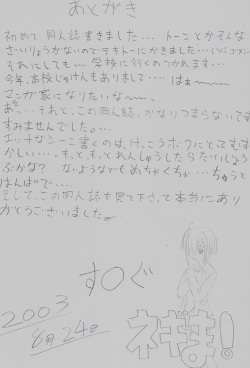 あとがき
初めて同人誌書きました... トーンとかそんな
ざいりょうがないのでテキトーにかきました...
それにしても....学校に行くのつかれます...
今年、高校じゅけんもありまして.... はぁ〜〜
マンガ家になりたいな〜〜。
あ... それと、この同人誌、かなりつまらないです
すみませんでした。...
エッチなシーン書くのは、けっこうボクにとてもむず
かしい... もっと、もっとれんしゅうしたらだいじょう
ぶかな? なようなでもめちゃくちゃ... ちゅうと
はんぱで....
そして、この同人誌を見て下さって本当にあり
がとうございました。
す〇ぐ
ネギま!
2003
8月24日